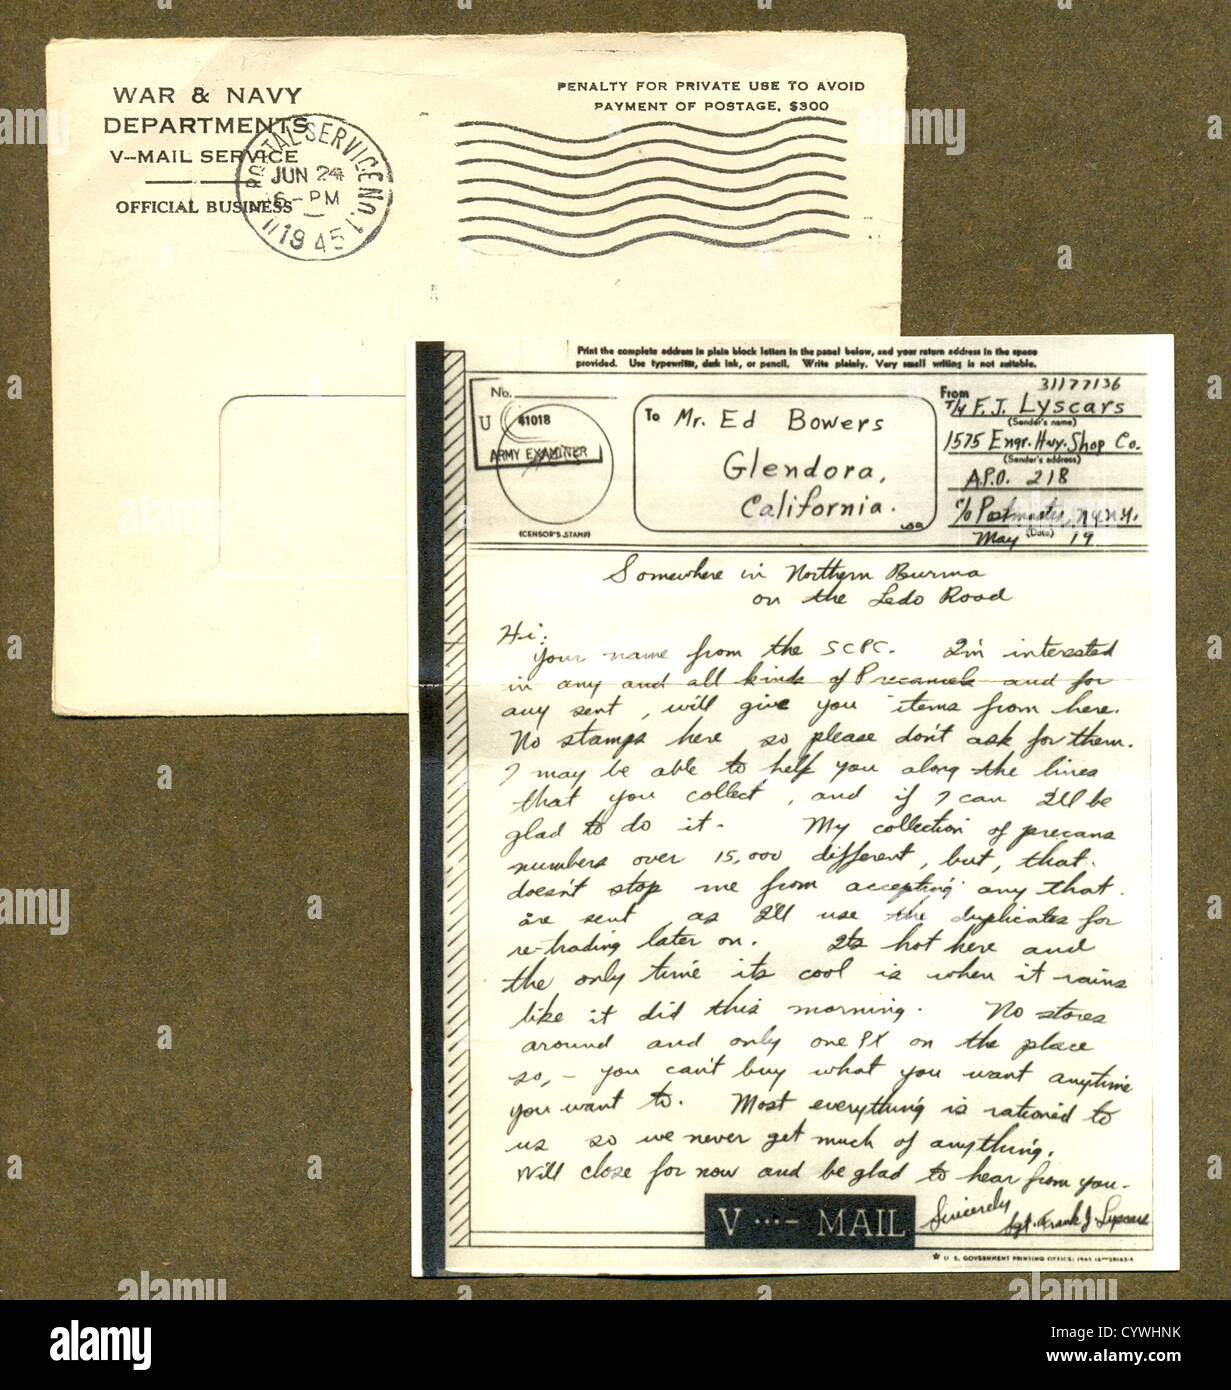 WAR & NAVY
DEPARTMENTS
V--MAIL SERVICE
OFFICIAL BUSINESS
POSTAL SERVICE NO. 1
JUN 24
6-PM
1945
PENALTY FOR PRIVATE USE TO AVOID
PAYMENT OF POSTAGE, $300
Print the complete address in plain block letters in the panel below, and your return address in the space
provided. Use typewriter, dark ink, or pencil. Write plainly. Very small writing is not suitable.
No.
U
41018
ARMY EXAMINER
(CENSOR'S STAMP)
To Mr. Ed Bowers
Glendora,
California.
USA
31177136
From
T/4 F. J. Lyscars
(Sender's name)
1575 Engr. Hvy. Shop Co.
(Sender's address)
A.P.O. 218
c/o Postmaster, N.Y. N.Y.
May (Date) 19
Somewhere in Northern Burma
on the Ledo Road
Hi:
Your name from the SCPC. I'm interested
in any and all kinds of Precancels and for
any sent, will give you items from here.
No stamps here so please don't ask for them.
I may be able to help you along the lines
that you collect, and if I can I'll be
glad to do it. My collection of precans
numbers over 15,000 different, but, that
doesn't stop me from accepting any that
are sent as I'll use the duplicates for
re-trading later on. Its hot here and
the only time its cool is when it rains
like it did this morning. No stores
around and only one PX on the place
so, - you can't buy what you want anytime
you want to. Most everything is rationed to
us so we never get much of anything.
Will close for now and be glad to hear from you.
Sincerely
Sgt. Frank J. Lyscars
V ···— MAIL
★ U. S. GOVERNMENT PRINTING OFFICE: 1943
alamy
Image ID: CYWHNK
www.alamy.com